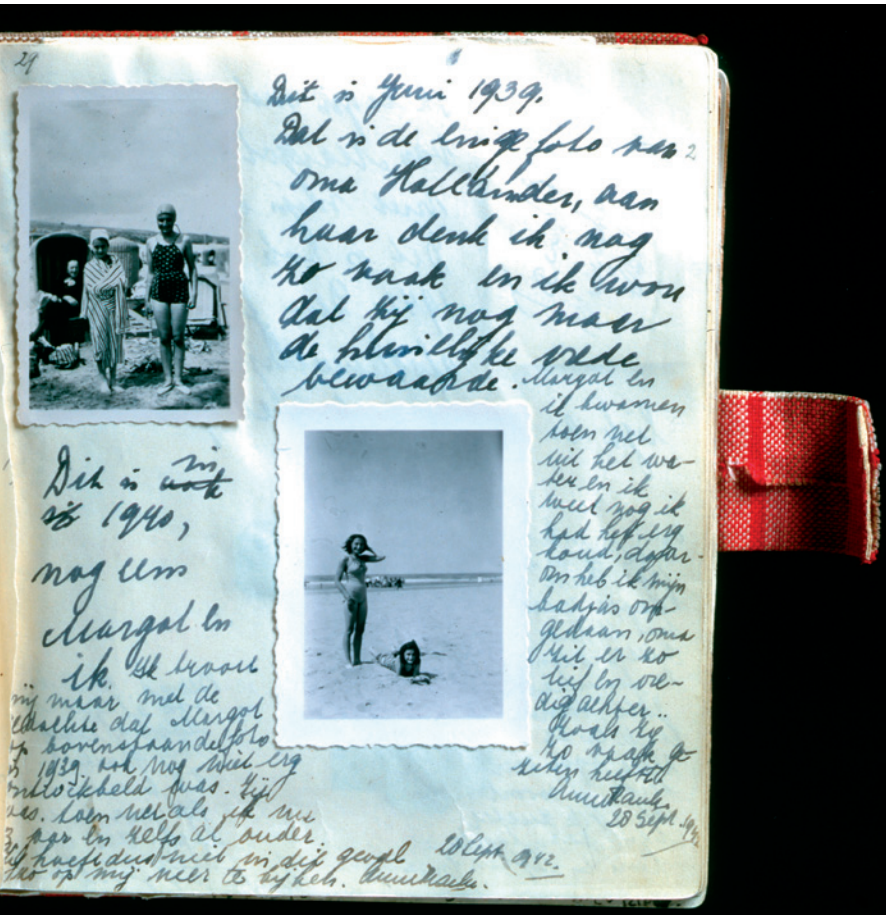 Dit is Juni 1939.
Dat is de enige foto van
oma Hollander, aan
haar denk ik nog
zo vaak en ik wou
dat zij nog maar
de huiselijke vrede
bewaarde. Margot en
ik kwamen
toen net
uit het wa-
ter en ik
weet nog ik
had het erg
koud, daar-
om heb ik mijn
badjas om-
gedaan, oma
zit er zo
lief en vre-
dig achter..
Zoals zij
zo vaak ge
zeten heeft.
Anne Frank.
28 Sept. 1942
Dit is in
1940,
nog eens
Margot en
ik. Ik troost
mij maar met de
gedachte dat Margot
op bovenstaande foto
in 1939 ook nog niet erg
ontwikkeld was. Zij
was toen net als ik nu
13 jaar en zelfs al ouder.
Zij hoeft dus niet in dit geval
zo op mij neer te kijken. Anne Frank.
28 Sept. 1942.